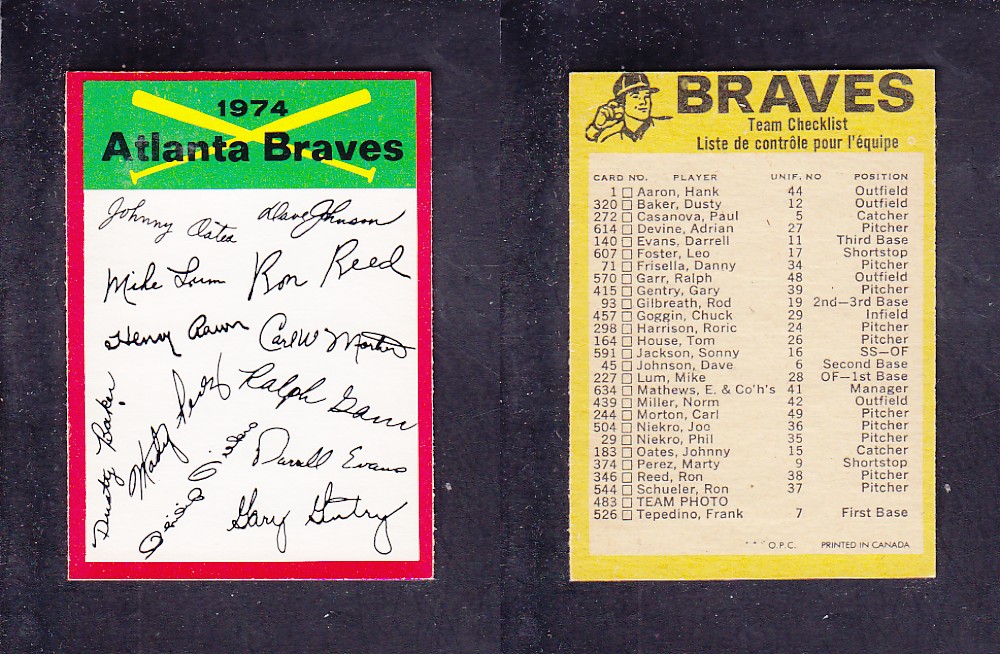 1974
Atlanta Braves
Johnny Oates
Dave Johnson
Mike Lum
Ron Reed
Henry Aaron
Carl W Morton
Ralph Garr
Dusty Baker
Marty Perez
Darrell Evans
Gary Gentry
BRAVES
Team Checklist
Liste de contrôle pour l'équipe
CARD NO. PLAYER UNIF. NO POSITION
1 Aaron, Hank 44 Outfield
320 Baker, Dusty 12 Outfield
272 Casanova, Paul 5 Catcher
614 Devine, Adrian 27 Pitcher
140 Evans, Darrell 11 Third Base
607 Foster, Leo 17 Shortstop
71 Frisella, Danny 34 Pitcher
570 Garr, Ralph 48 Outfield
415 Gentry, Gary 39 Pitcher
93 Gilbreath, Rod 19 2nd—3rd Base
457 Goggin, Chuck 29 Infield
298 Harrison, Roric 24 Pitcher
164 House, Tom 26 Pitcher
591 Jackson, Sonny 16 SS—OF
45 Johnson, Dave 6 Second Base
227 Lum, Mike 28 OF—1st Base
634 Mathews, E. & Co'h's 41 Manager
439 Miller, Norm 42 Outfield
244 Morton, Carl 49 Pitcher
504 Niekro, Joe 36 Pitcher
29 Niekro, Phil 35 Pitcher
183 Oates, Johnny 15 Catcher
374 Perez, Marty 9 Shortstop
346 Reed, Ron 38 Pitcher
544 Schueler, Ron 37 Pitcher
483 TEAM PHOTO
526 Tepedino, Frank 7 First Base
O.P.C. PRINTED IN CANADA